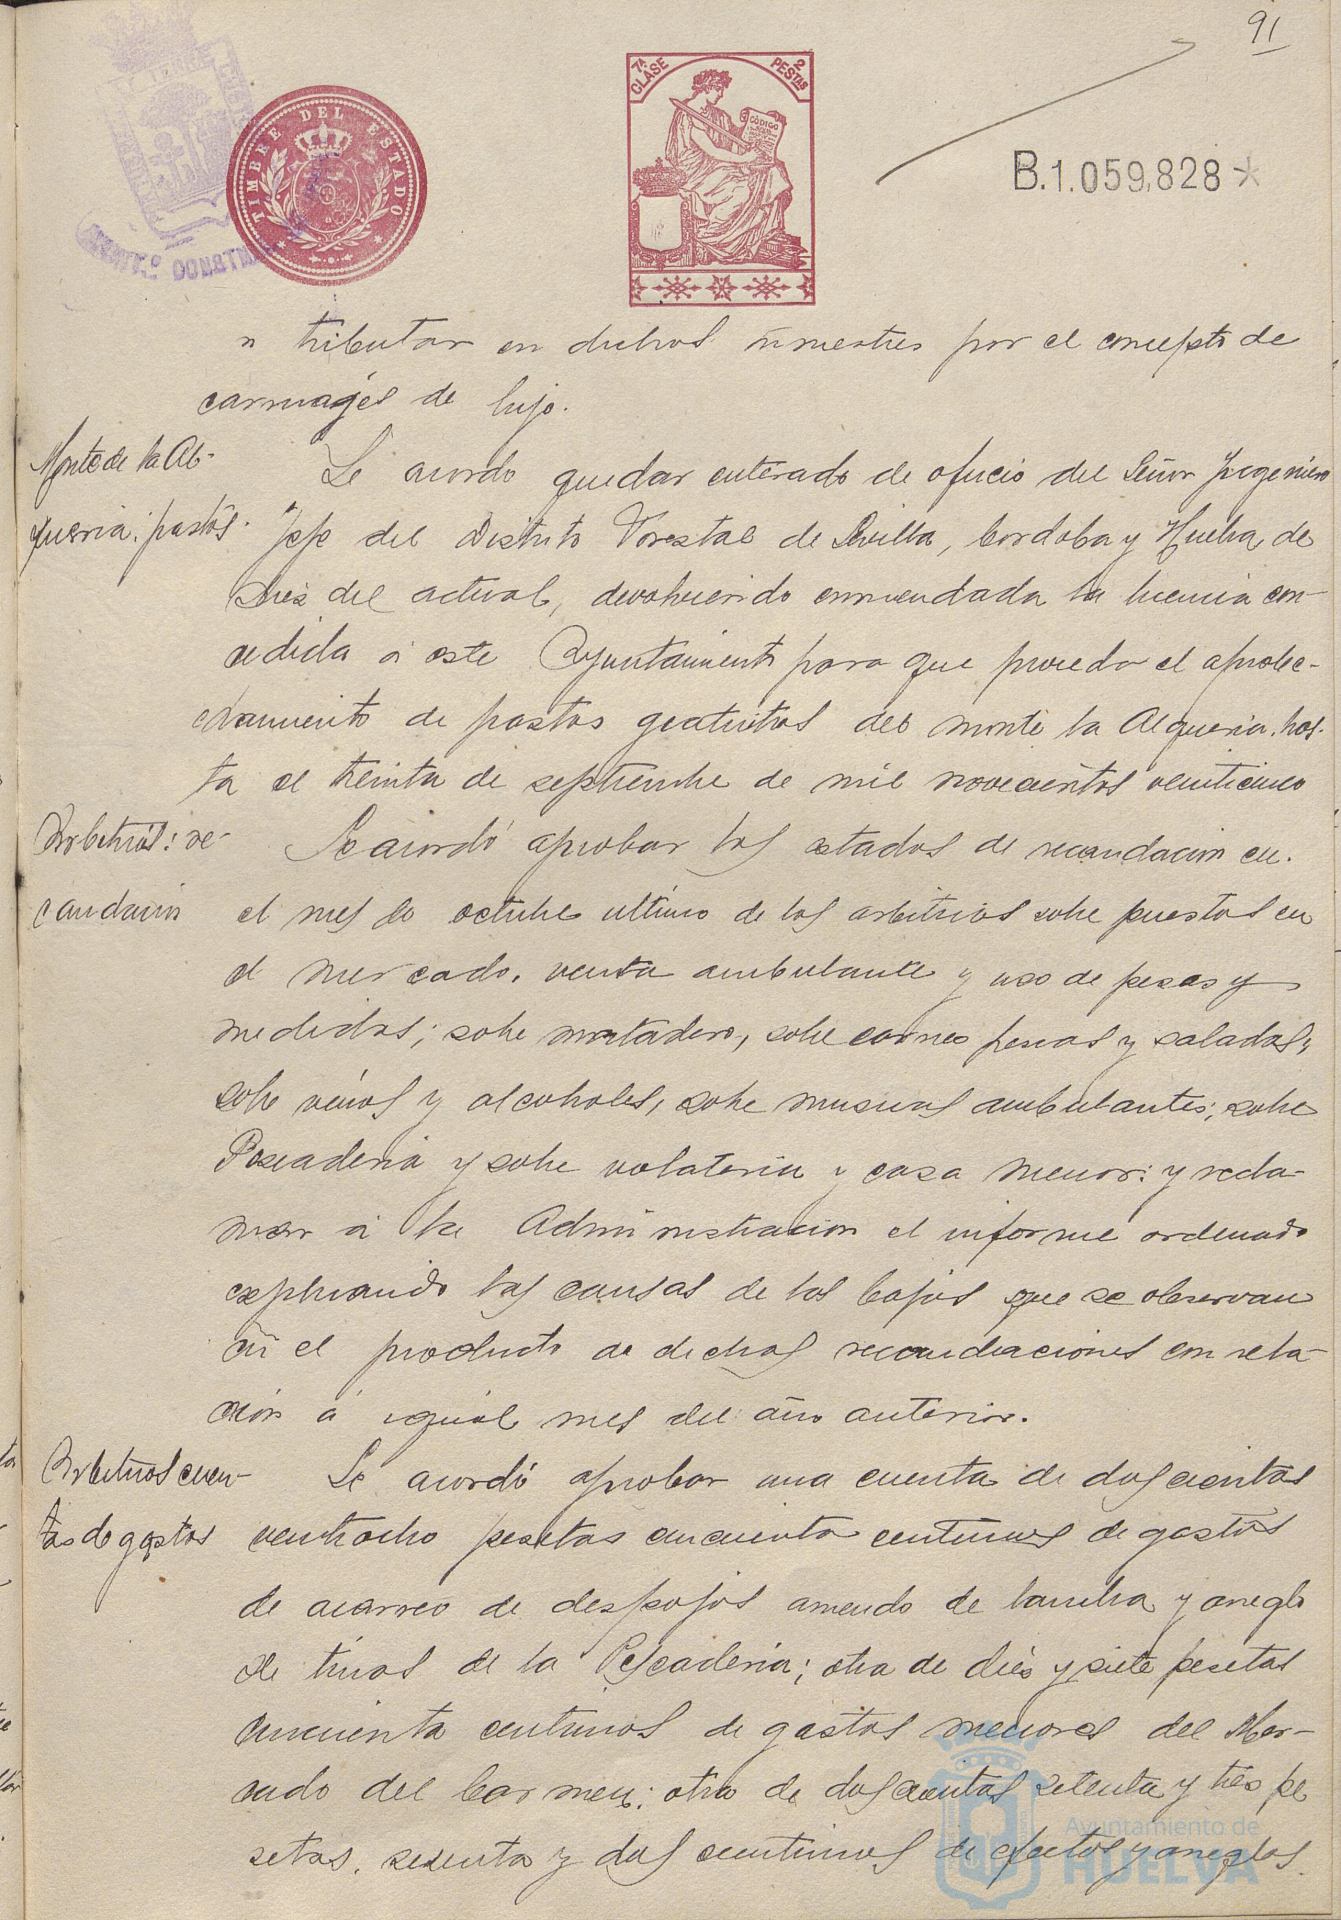 91
7ª CLASE
2 PESTAS
CÓDIGO
TIMBRE DEL ESTADO
B.1.059,828*
a tributar en dichos trimestres por el concepto de
carruages de lujo.
Monte de la Al-
queria: pastos.
Se acordo quedar enterado de oficio del Señor Ingeniero
Jefe del Distrito Forestal de Sevilla, Cordoba y Huelva de
diez del actual, devolviendo enmendada la licencia con-
cedida á este Ayuntamiento para que pueda el aprove-
chamiento de pastos gratuitos del monte la Alqueria, has-
ta el treinta de septiembre de mil novecientos veinticinco
Arbitrios: re-
caudacion
Se acordó aprobar los estados de recaudacion en
el mes de octubre ultimo de los arbitrios sobre puestos en
el mercado, venta ambulante y uso de pesas y
medidas; sobre matadero, sobre carnes frescas y saladas,
sobre vinos y alcoholes, sobre musicas ambulantes; sobre
Pescaderia y sobre volateria y caza menor: y recla-
mar á la Administracion el informe ordenado
explicando las causas de las bajas que se observan
en el producto de dichas recaudaciones con rela-
ción á igual mes del año anterior.
Arbitrios cuen-
tas de gastos
Se acordó aprobar una cuenta de doscientas
veintiocho pesetas cincuenta centimos de gastos
de acarreo de despojos arriendo de lancha y arreglo
de tinas de la Pescaderia; otra de diez y siete pesetas
cincuenta centimos de gastos menores del Mer-
cado del Carmen; otra de doscientas setenta y tres pe
setas, sesenta y dos centimos de efectos y arreglos
Ayuntamiento de
HUELVA